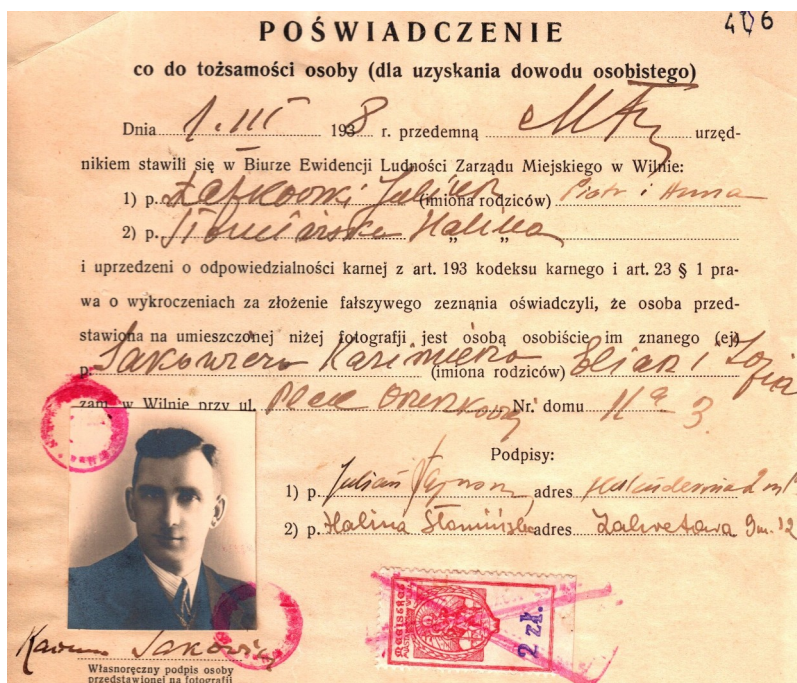 POŚWIADCZENIE
co do tożsamości osoby (dla uzyskania dowodu osobistego)
Dnia 1. III 1938 r. przedemną urzęd-
nikiem stawili się w Biurze Ewidencji Ludności Zarządu Miejskiego w Wilnie:
1) p. (imiona rodziców) Piotr i Anna
2) p. Halina „ „
i uprzedzeni o odpowiedzialności karnej z art. 193 kodeksu karnego i art. 23 § 1 pra-
wa o wykroczeniach za złożenie fałszywego zeznania oświadczyli, że osoba przed-
stawiona na umieszczonej niżej fotografji jest osobą osobiście im znanego (ej)
p. Kazimierza (imiona rodziców) i Zofia
zam. w Wilnie przy ul. Nr. domu 11a 3
Podpisy:
1) p. Julian adres
2) p. Halina adres 9 m. 12
2 zł.
Własnoręczny podpis osoby
przedstawionej na fotografji